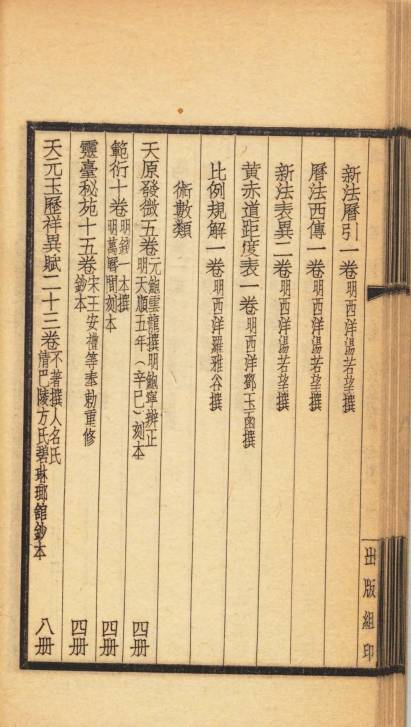 新法曆引一卷明西洋湯若望撰
曆法西傳一卷明西洋湯若望撰
新法表異二卷明西洋湯若望撰
黃赤道距度表一卷明西洋鄧玉函撰
比例規解一卷明西洋羅雅谷撰
術數類
天原發微五卷元鮑雲龍撰明鮑寧辨正
明天順五年(辛巳)刻本 四冊
範衍十卷明錢一本撰
明萬曆間刻本 四冊
靈臺秘苑十五卷宋王安禮等奉勅重修
鈔本 四冊
天元玉曆祥異賦二十三卷不著撰人名氏
清巴陵方氏碧琳瑯館鈔本 八冊
出版組印